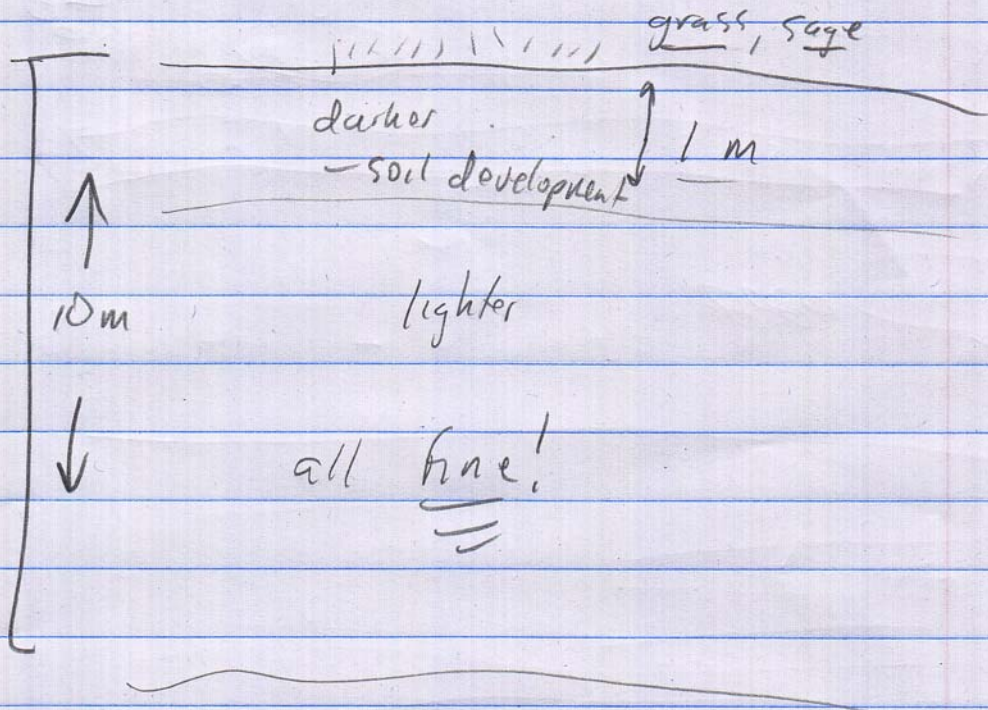 grass, sage
darker
- soil development
1 m
10m
lighter
all fine!